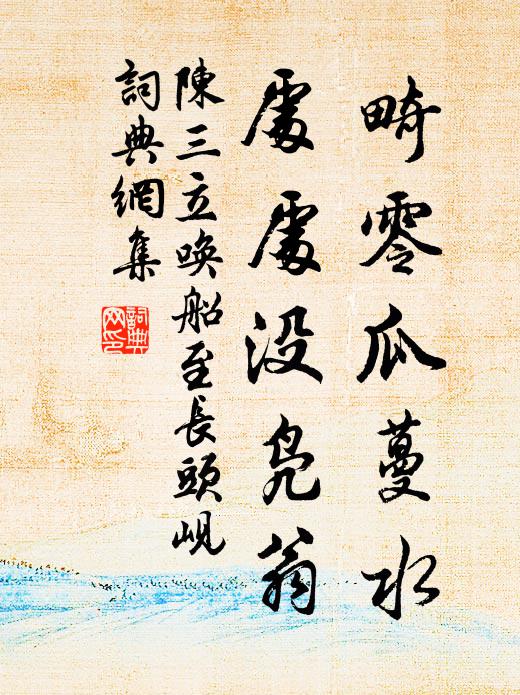 畸零瓜蔓水
處處没鳧翁
陳三立唤船至長頭峴
詞典網集
詞典
网印